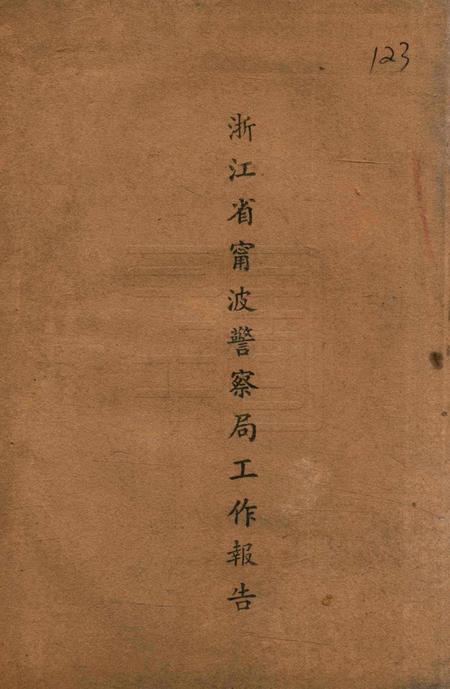 123
浙江省甯波警察局工作報告